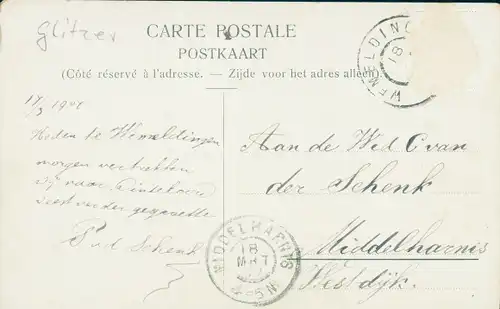 Glitzer
CARTE POSTALE
POSTKAART
(Côté réservé à l'adresse. — Zijde voor het adres alleen).
WEMELDINGE
18
17/3 1907
Heden te Wemeldingen
morgen vertrekken
wij naar
P v d Schenk
Aan de Wed C van
der Schenk
Middelharnis
Westdijk.
MIDDELHARNIS
18
MRT
4-5N